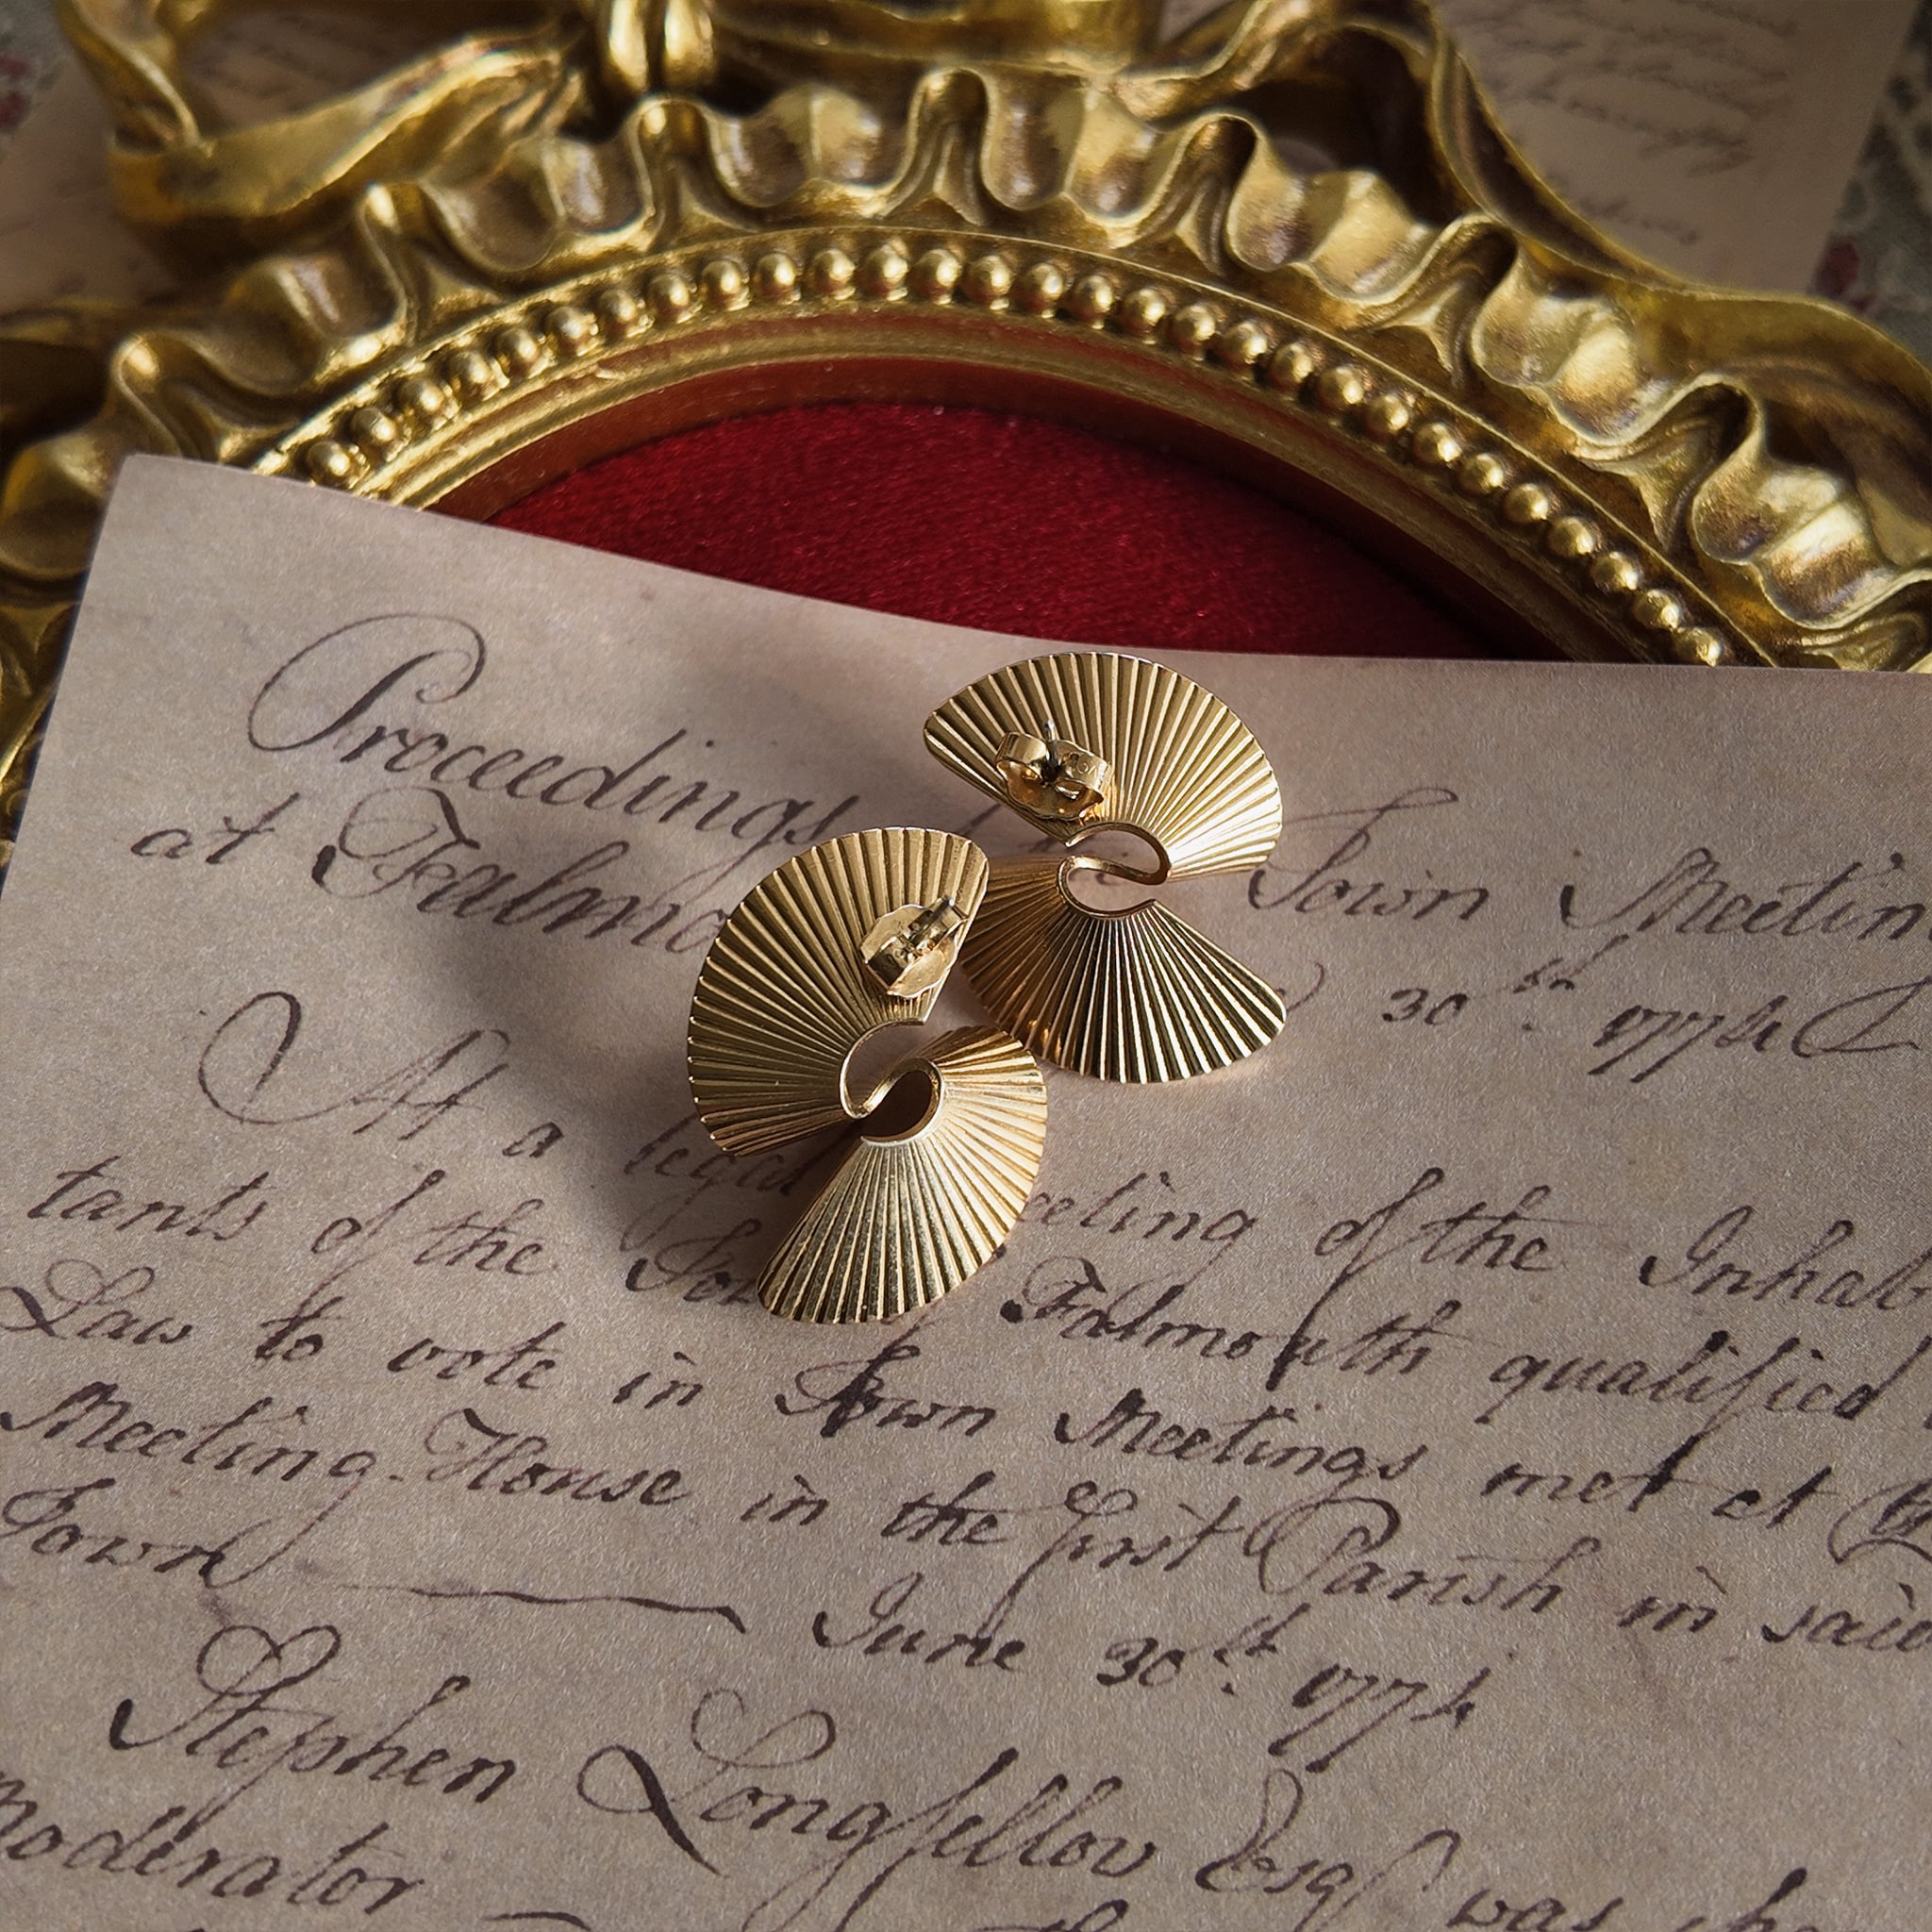 Proceedings Town Meetin
at Falmo 30th 1774
At a legal eeting of the Inhab
tants of the Falmouth qualified
Law to vote in Town Meetings met at
Meeting-House in the first Parish in said
Town — June 30th 1774
Stephen Longfellow Esqr was
moderator